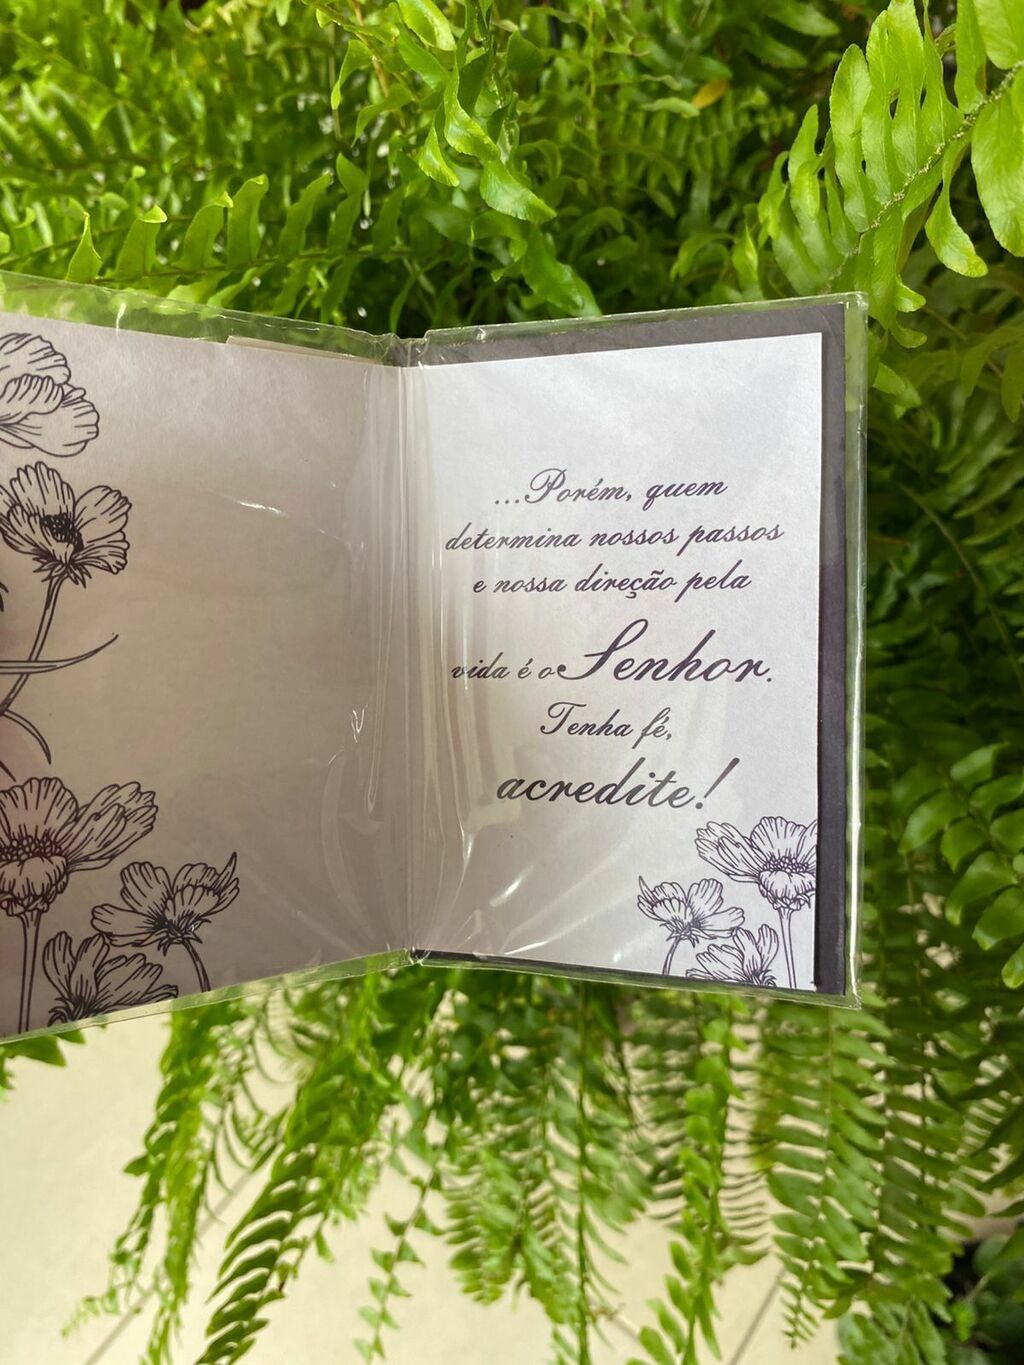 ...Porém, quem
determina nossos passos
e nossa direção pela
vida é o Senhor.
Tenha fé,
acredite!